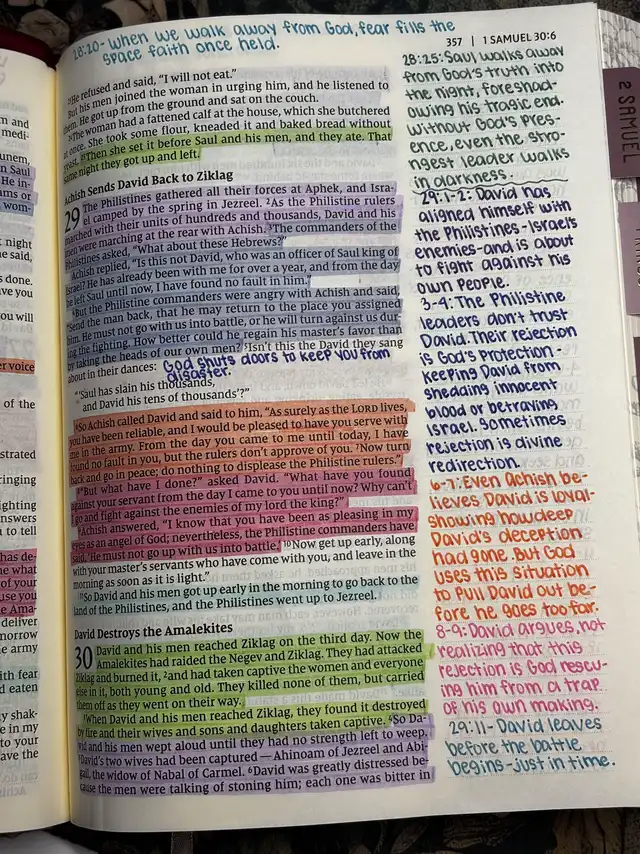 28:20-when we walk away from God, fear fills the
space faith once held.
357 | 1 SAMUEL 30:6
23He refused and said, "I will not eat."
But his men joined the woman in urging him, and he listened to
them. He got up from the ground and sat on the couch.
24The woman had a fattened calf at the house, which she butchered
at once. She took some flour, kneaded it and baked bread without
yeast. 25Then she set it before Saul and his men, and they ate. That
same night they got up and left.
Achish Sends David Back to Ziklag
29 The Philistines gathered all their forces at Aphek, and Isra-
el camped by the spring in Jezreel. 2As the Philistine rulers
marched with their units of hundreds and thousands, David and his
men were marching at the rear with Achish. 3The commanders of the
Philistines asked, "What about these Hebrews?"
Achish replied, "Is this not David, who was an officer of Saul king of
Israel? He has already been with me for over a year, and from the day
he left Saul until now, I have found no fault in him."
4But the Philistine commanders were angry with Achish and said,
"Send the man back, that he may return to the place you assigned
him. He must not go with us into battle, or he will turn against us dur-
ing the fighting. How better could he regain his master's favor than
by taking the heads of our own men? 5Isn't this the David they sang
about in their dances:
God shuts doors to keep you from
disaster.
"'Saul has slain his thousands,
and David his tens of thousands'?"
6So Achish called David and said to him, "As surely as the LORD lives,
you have been reliable, and I would be pleased to have you serve with
me in the army. From the day you came to me until today, I have
found no fault in you, but the rulers don't approve of you. 7Now turn
back and go in peace; do nothing to displease the Philistine rulers."
8"But what have I done?" asked David. "What have you found
against your servant from the day I came to you until now? Why can't
I go and fight against the enemies of my lord the king?"
9Achish answered, "I know that you have been as pleasing in my
eyes as an angel of God; nevertheless, the Philistine commanders have
said, 'He must not go up with us into battle.' 10Now get up early, along
with your master's servants who have come with you, and leave in the
morning as soon as it is light."
11So David and his men got up early in the morning to go back to the
land of the Philistines, and the Philistines went up to Jezreel.
David Destroys the Amalekites
30 David and his men reached Ziklag on the third day. Now the
Amalekites had raided the Negev and Ziklag. They had attacked
Ziklag and burned it, 2and had taken captive the women and everyone
else in it, both young and old. They killed none of them, but carried
them off as they went on their way.
3When David and his men reached Ziklag, they found it destroyed
by fire and their wives and sons and daughters taken captive. 4So Da-
vid and his men wept aloud until they had no strength left to weep.
5David's two wives had been captured — Ahinoam of Jezreel and Abi-
gail, the widow of Nabal of Carmel. 6David was greatly distressed be-
cause the men were talking of stoning him; each one was bitter in
28:25: Saul walks away
from God's truth into
the night, foreshad-
owing his tragic end.
Without God's pres-
ence, even the stro-
ngest leader walks
in darkness.
29:1-2: David has
aligned himself with
the Philistines-Israel's
enemies-and is about
to fight against his
own people.
3-4: The Philistine
leaders don't trust
David. Their rejection
is God's protection-
keeping David from
shedding innocent
blood or betraying
Israel. Sometimes
rejection is divine
redirection.
6-7: Even Achish be-
lieves David is loyal-
showing how deep
David's deception
had gone. But God
uses this situation
to pull David out be-
fore he goes too far.
8-9: David argues, not
realizing that this
rejection is God rescu-
ing him from a trap
of his own making.
29:11-David leaves
before the battle
begins-just in time.
2 SAMUEL